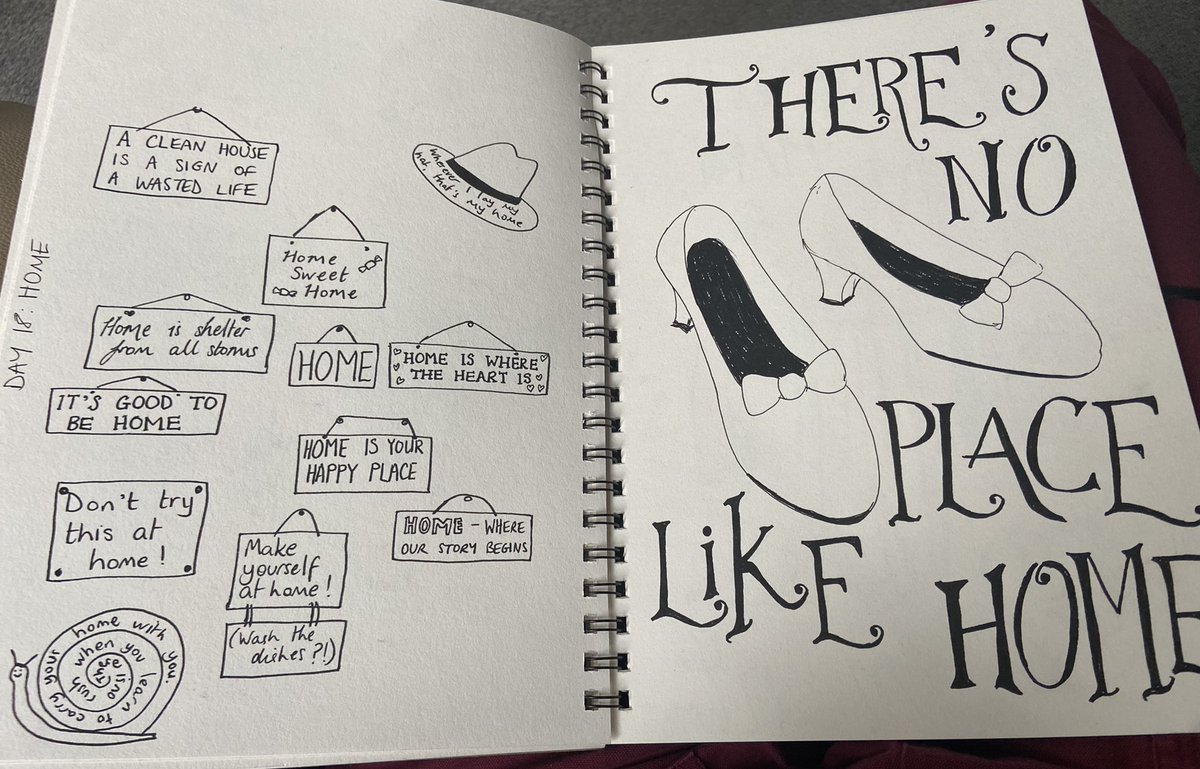 DAY 18: HOME
A CLEAN HOUSE
IS A SIGN OF
A WASTED LIFE
Wherever I lay my
hat, that's my home
Home
Sweet
Home
Home is shelter
from all storms
HOME
HOME IS WHERE
THE HEART IS
IT'S GOOD TO
BE HOME
HOME IS YOUR
HAPPY PLACE
Don't try
this at
home!
Make
yourself
at home!
(Wash the
dishes?!)
HOME - WHERE
OUR STORY BEGINS
there is no rush when you learn to carry your home with you.
THERE'S
NO
PLACE
LiKE
HOME